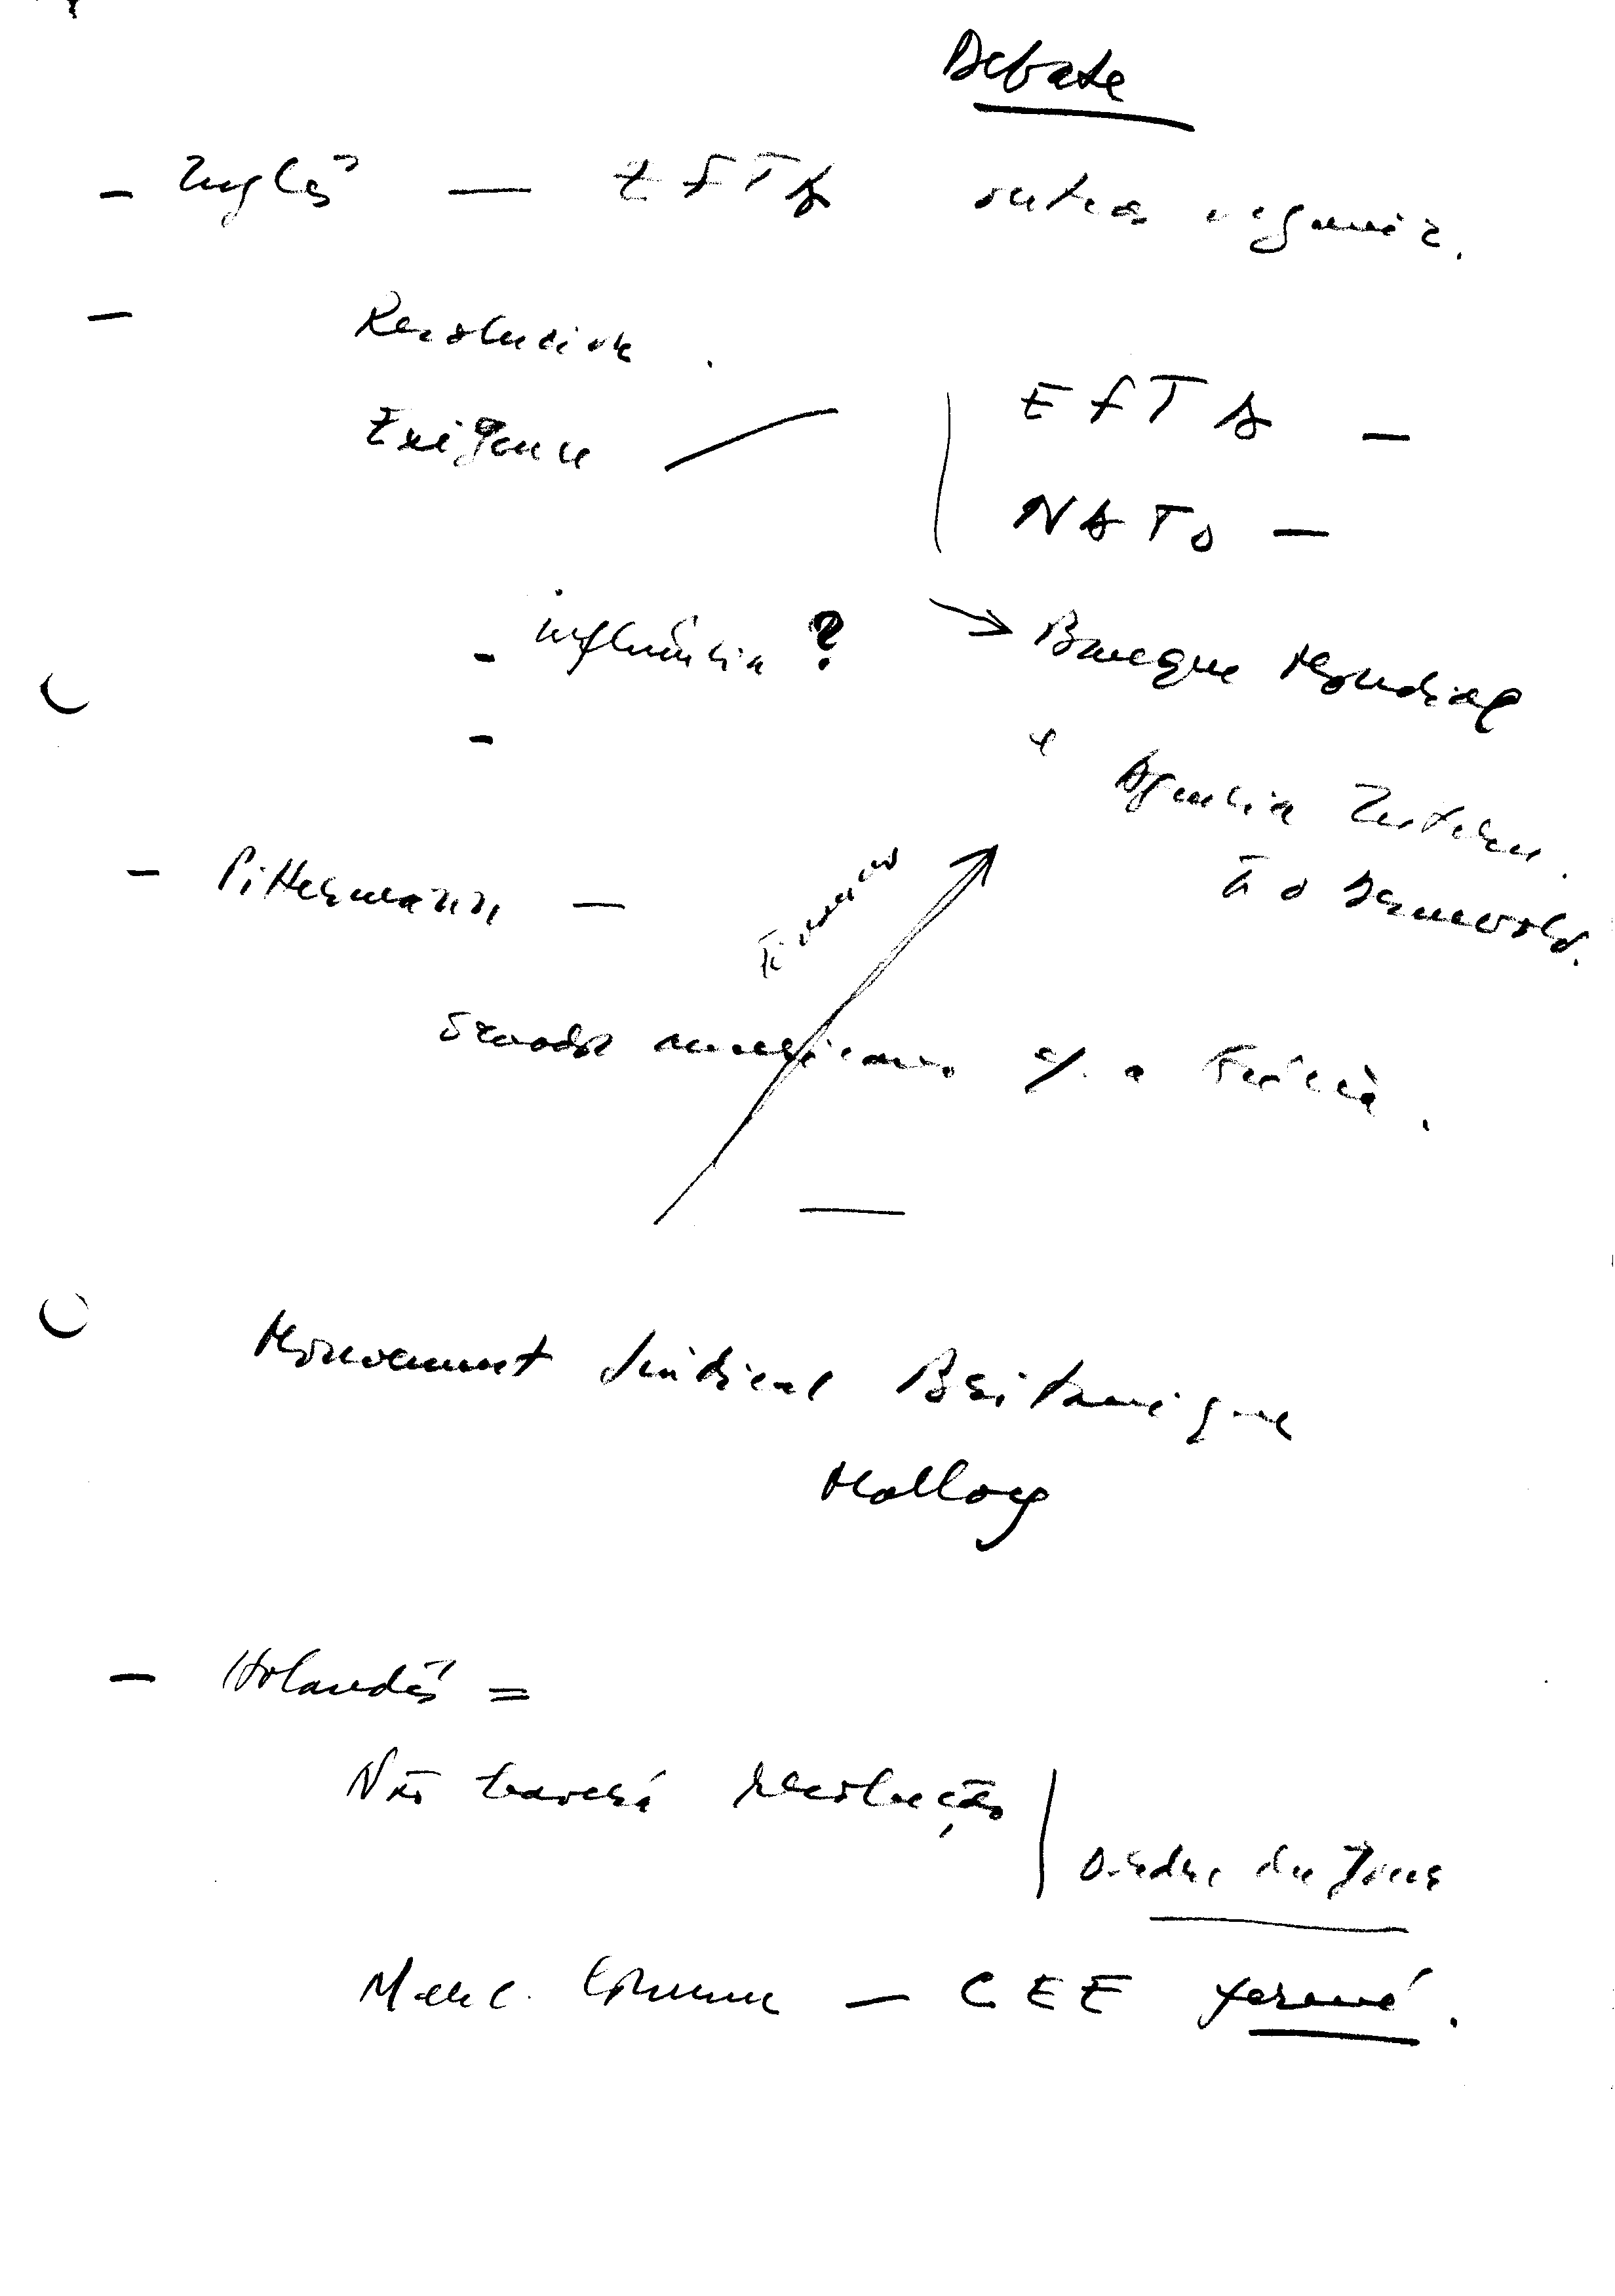 Debate
- Inglês — EFTA outras organiz.
- Resolucion.
Exigence
EFTA -
NATO -
- influência ?
→ Banque Mondial
e Agência Intern.
- Pittermann —
Tió Desenvold.
americano p. a Grécia.
Mouvement Sindical Britanique
Mallory
- Holandês =
Não haverá resolução
Ordre du Jour
Marc. Commun — CEE fermé.